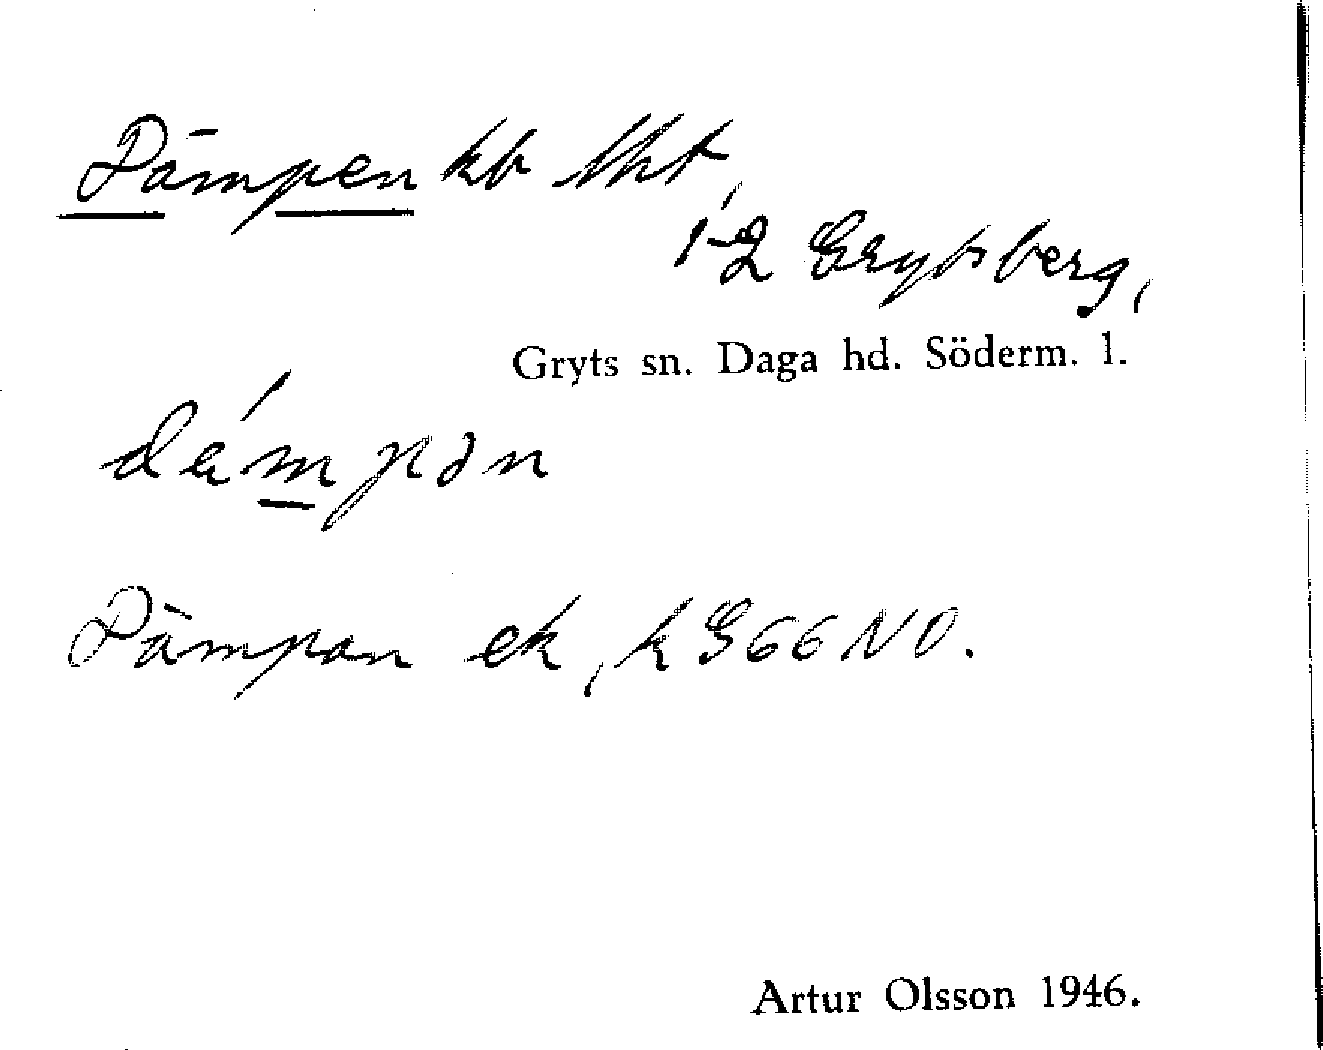 Dämpen kb lht,
1-2 Grytsberg,
Gryts sn. Daga hd. Söderm. l.
dämpən
Dämpan ek, k G66NO.
Artur Olsson 1946.